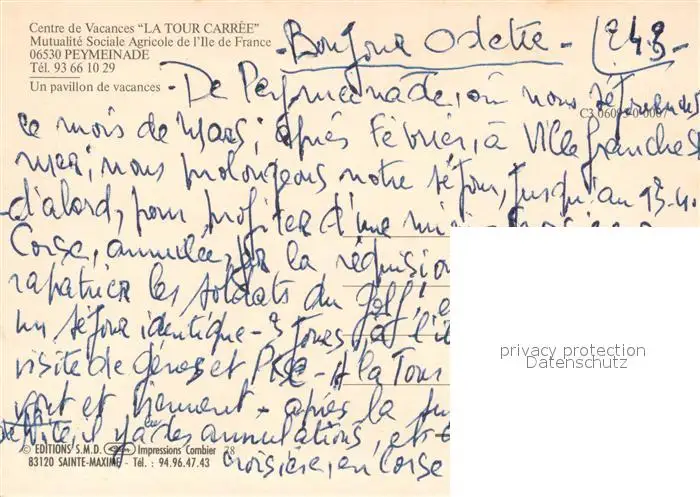 Centre de Vacances "LA TOUR CARRÉE"
Mutualité Sociale Agricole de l'Ile de France
06530 PEYMEINADE
Tél. 93 66 10 29
Un pavillon de vacances
- Bonjour Odette -
- De Peymeinade, où nous séjournons
C3 06095 0 0007
ce mois de Mars; après Février, à Villefranche s
mer; nous prolongeons notre séjour, jusqu'au 13-4.
- d'abord, pour profiter d'une mini-croisière
Corse, annulée, par la réquisi
rapatrier les soldats du golf,
un séjour identique - 3 jours à l'î
visite de Gènes et Pise - A la Tour
vont et viennent - après la
il y a des annulations, et
croisière, en Corse
© EDITIONS S.M.D. Impressions Combier 78
83120 SAINTE-MAXIME - Tél. : 94.96.47.43
privacy protection
Datenschutz